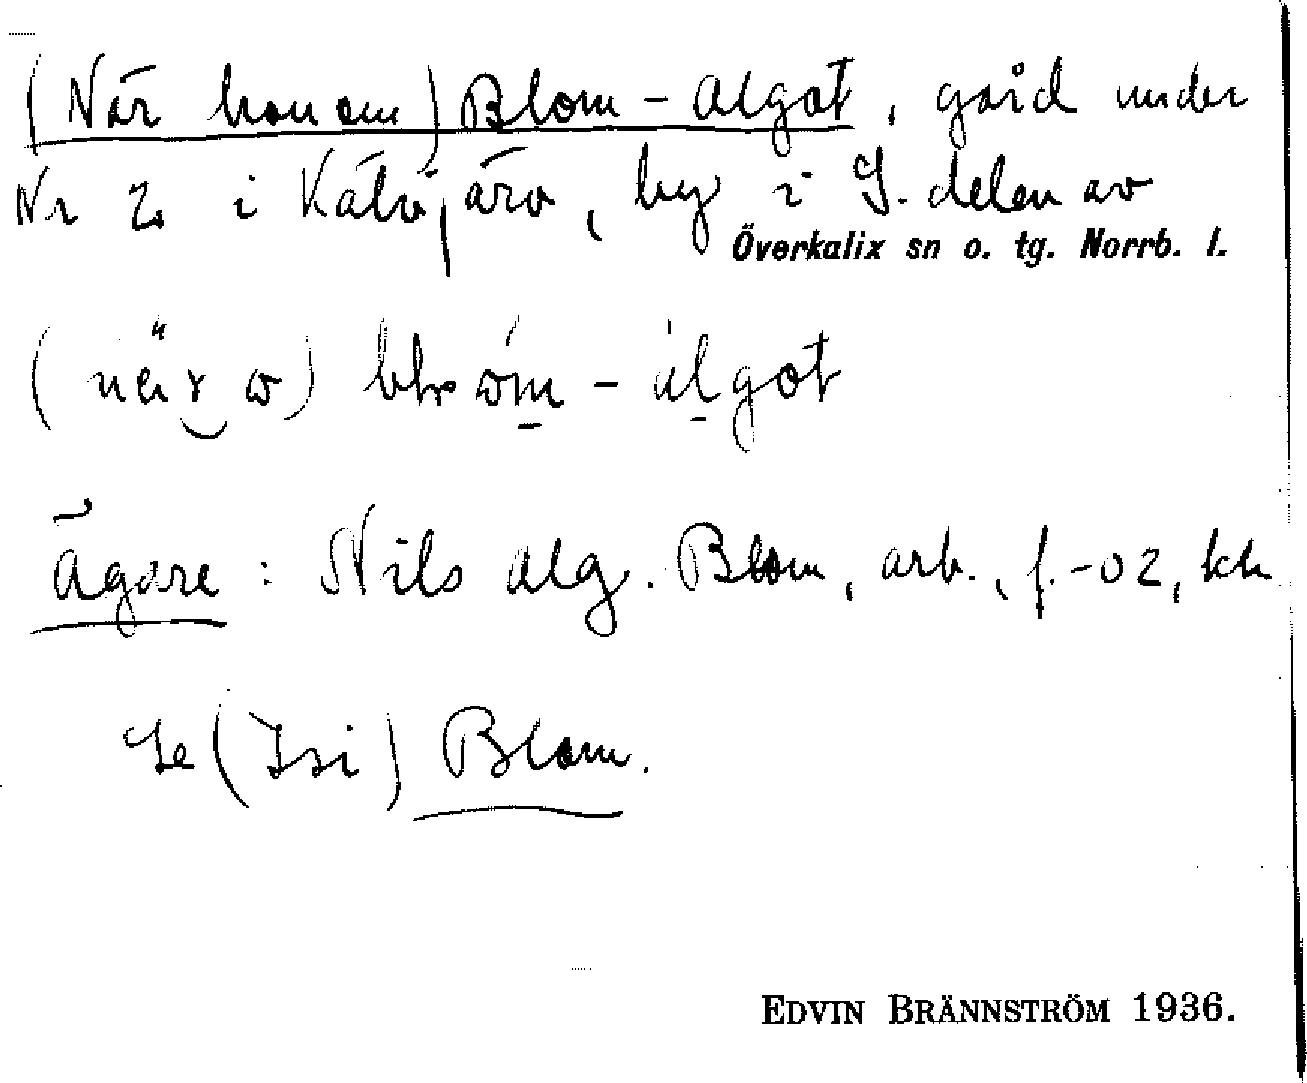 (När honom) Blom-Algot, gård under
Nr 2 i Kälvjärv, by i S. delen av
Överkalix sn o. tg. Norrb. l.
Ägare: Nils Alg. Blom, arb., f. -02, kh
Se (Isi) Blom.
EDVIN BRÄNNSTRÖM 1936.